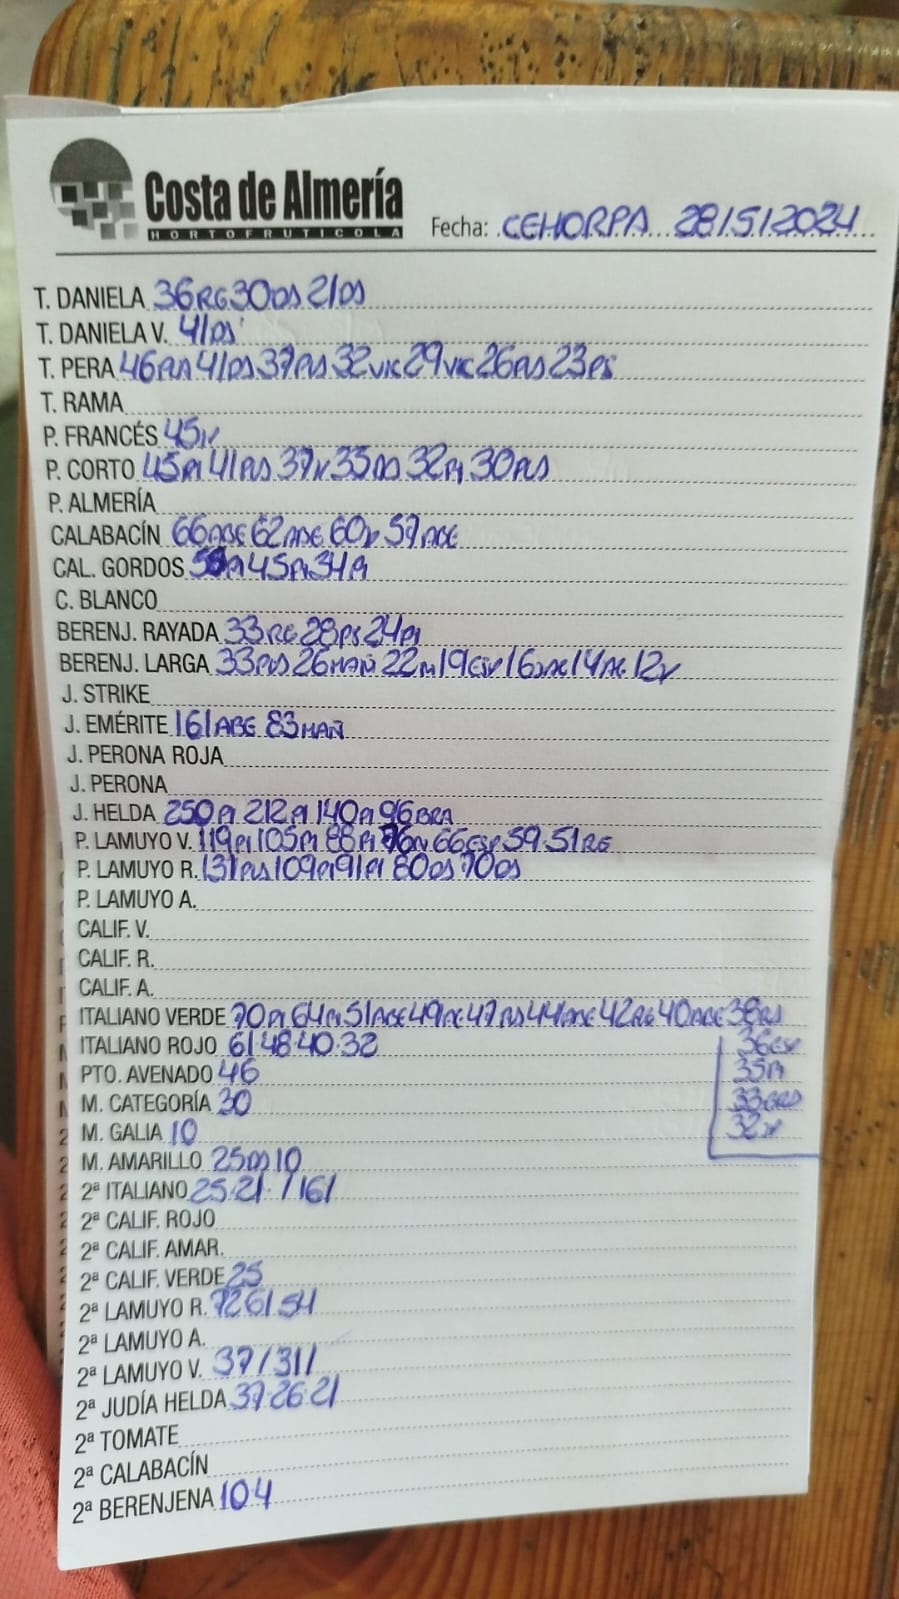 Costa de Almería
HORTOFRUTICOLA
Fecha: CEHORPA 28/5/2024
T. DANIELA 36RG 30DS 21DS
T. DANIELA V. 41DS
T. PERA 46PUS 41DS 37PUS 32VK 29VK 26PUS 23PS
T. RAMA
P. FRANCÉS 45V
P. CORTO 45Pi 41PUS 37V 35DS 32Pi 30PUS
P. ALMERÍA
CALABACÍN 66ABE 62ABE 60V 57ABE
CAL. GORDOS 45Pi 34Pi
C. BLANCO
BERENJ. RAYADA 33RG 28PS 24Pi
BERENJ. LARGA 33PUS 26MAÑ 22M 19ESV 16 14AC 12V
J. STRIKE
J. EMÉRITE 161ABE 83MAÑ
J. PERONA ROJA
J. PERONA
J. HELDA 250Pi 212Pi 140Pi 96BRA
P. LAMUYO V. 119Pi 105Pi 88Pi 76 66ESP 59·51RG
P. LAMUYO R. 131PUS 109Pi 91Pi 80DS 70DS
P. LAMUYO A.
CALIF. V.
CALIF. R.
CALIF. A.
ITALIANO VERDE 70Pi 64Pi 51ABE 49AC 47PUS 44ABE 42RG 40ABE 38PUS
ITALIANO ROJO 61·48·40·32 36ESP
PTO. AVENADO 46 35Pi
M. CATEGORÍA 30 33
M. GALIA 10 32V
M. AMARILLO 25DS 10
2ª ITALIANO 25·21·/161
2ª CALIF. ROJO
2ª CALIF. AMAR.
2ª CALIF. VERDE 25
2ª LAMUYO R. 72 61 54
2ª LAMUYO A.
2ª LAMUYO V. 37/311
2ª JUDÍA HELDA 37·26·21
2ª TOMATE
2ª CALABACÍN
2ª BERENJENA 10·4